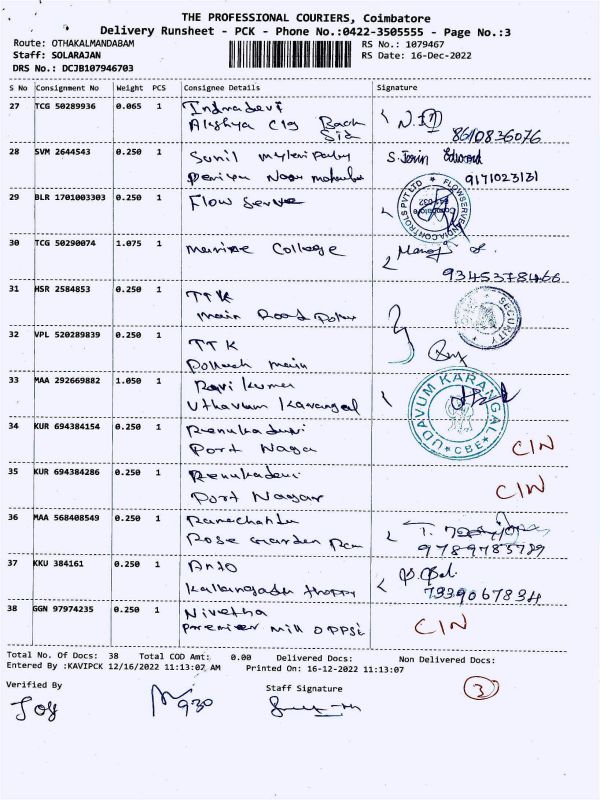 THE PROFESSIONAL COURIERS, Coimbatore
Delivery Runsheet - PCK - Phone No.:0422-3505555 - Page No.:3
Route: OTHAKALMANDABAM
RS No.: 1079467
Staff: SOLARAJAN
RS Date: 16-Dec-2022
DRS No.: DCJB107946703
S No Consignment No Weight PCS Consignee Details Signature
27 TCG 50289936 0.065 1 Indradevi
Akshya Clg Back
Sid
8610836076
28 SVM 2644543 0.250 1 Sunil
S. Jerin Edward
9171023131
29 BLR 1701003303 0.250 1 Flow Serve
FLOWSERVE INDIA CONTROLS PVT LTD
30 TCG 50290074 1.075 1 Marine College
Manoj
9345378466
31 HSR 2584853 0.250 1 TTK
main Road
SECURITY
32 VPL 520289839 0.250 1 TTK
main
33 MAA 292669882 1.050 1 Ravi Kumar
Uthavum Karangal
UDAVUM KARANGAL
CBE
34 KUR 694384154 0.250 1 Renukadevi
Port Naga
CIN
35 KUR 694384286 0.250 1 Renukadevi
Port Nagar
CIN
36 MAA 568408549 0.250 1 
Rose Garden
9789785789
37 KKU 384161 0.250 1 Anto
thoppy
7339067834
38 GGN 97974235 0.250 1 Nivetha
Premier Mill OPPSi
CIN
Total No. Of Docs: 38 Total COD Amt: 0.00 Delivered Docs: Non Delivered Docs:
Entered By :KAVIPCK 12/16/2022 11:13:07 AM Printed On: 16-12-2022 11:13:07
Verified By Staff Signature
3
Joy
930